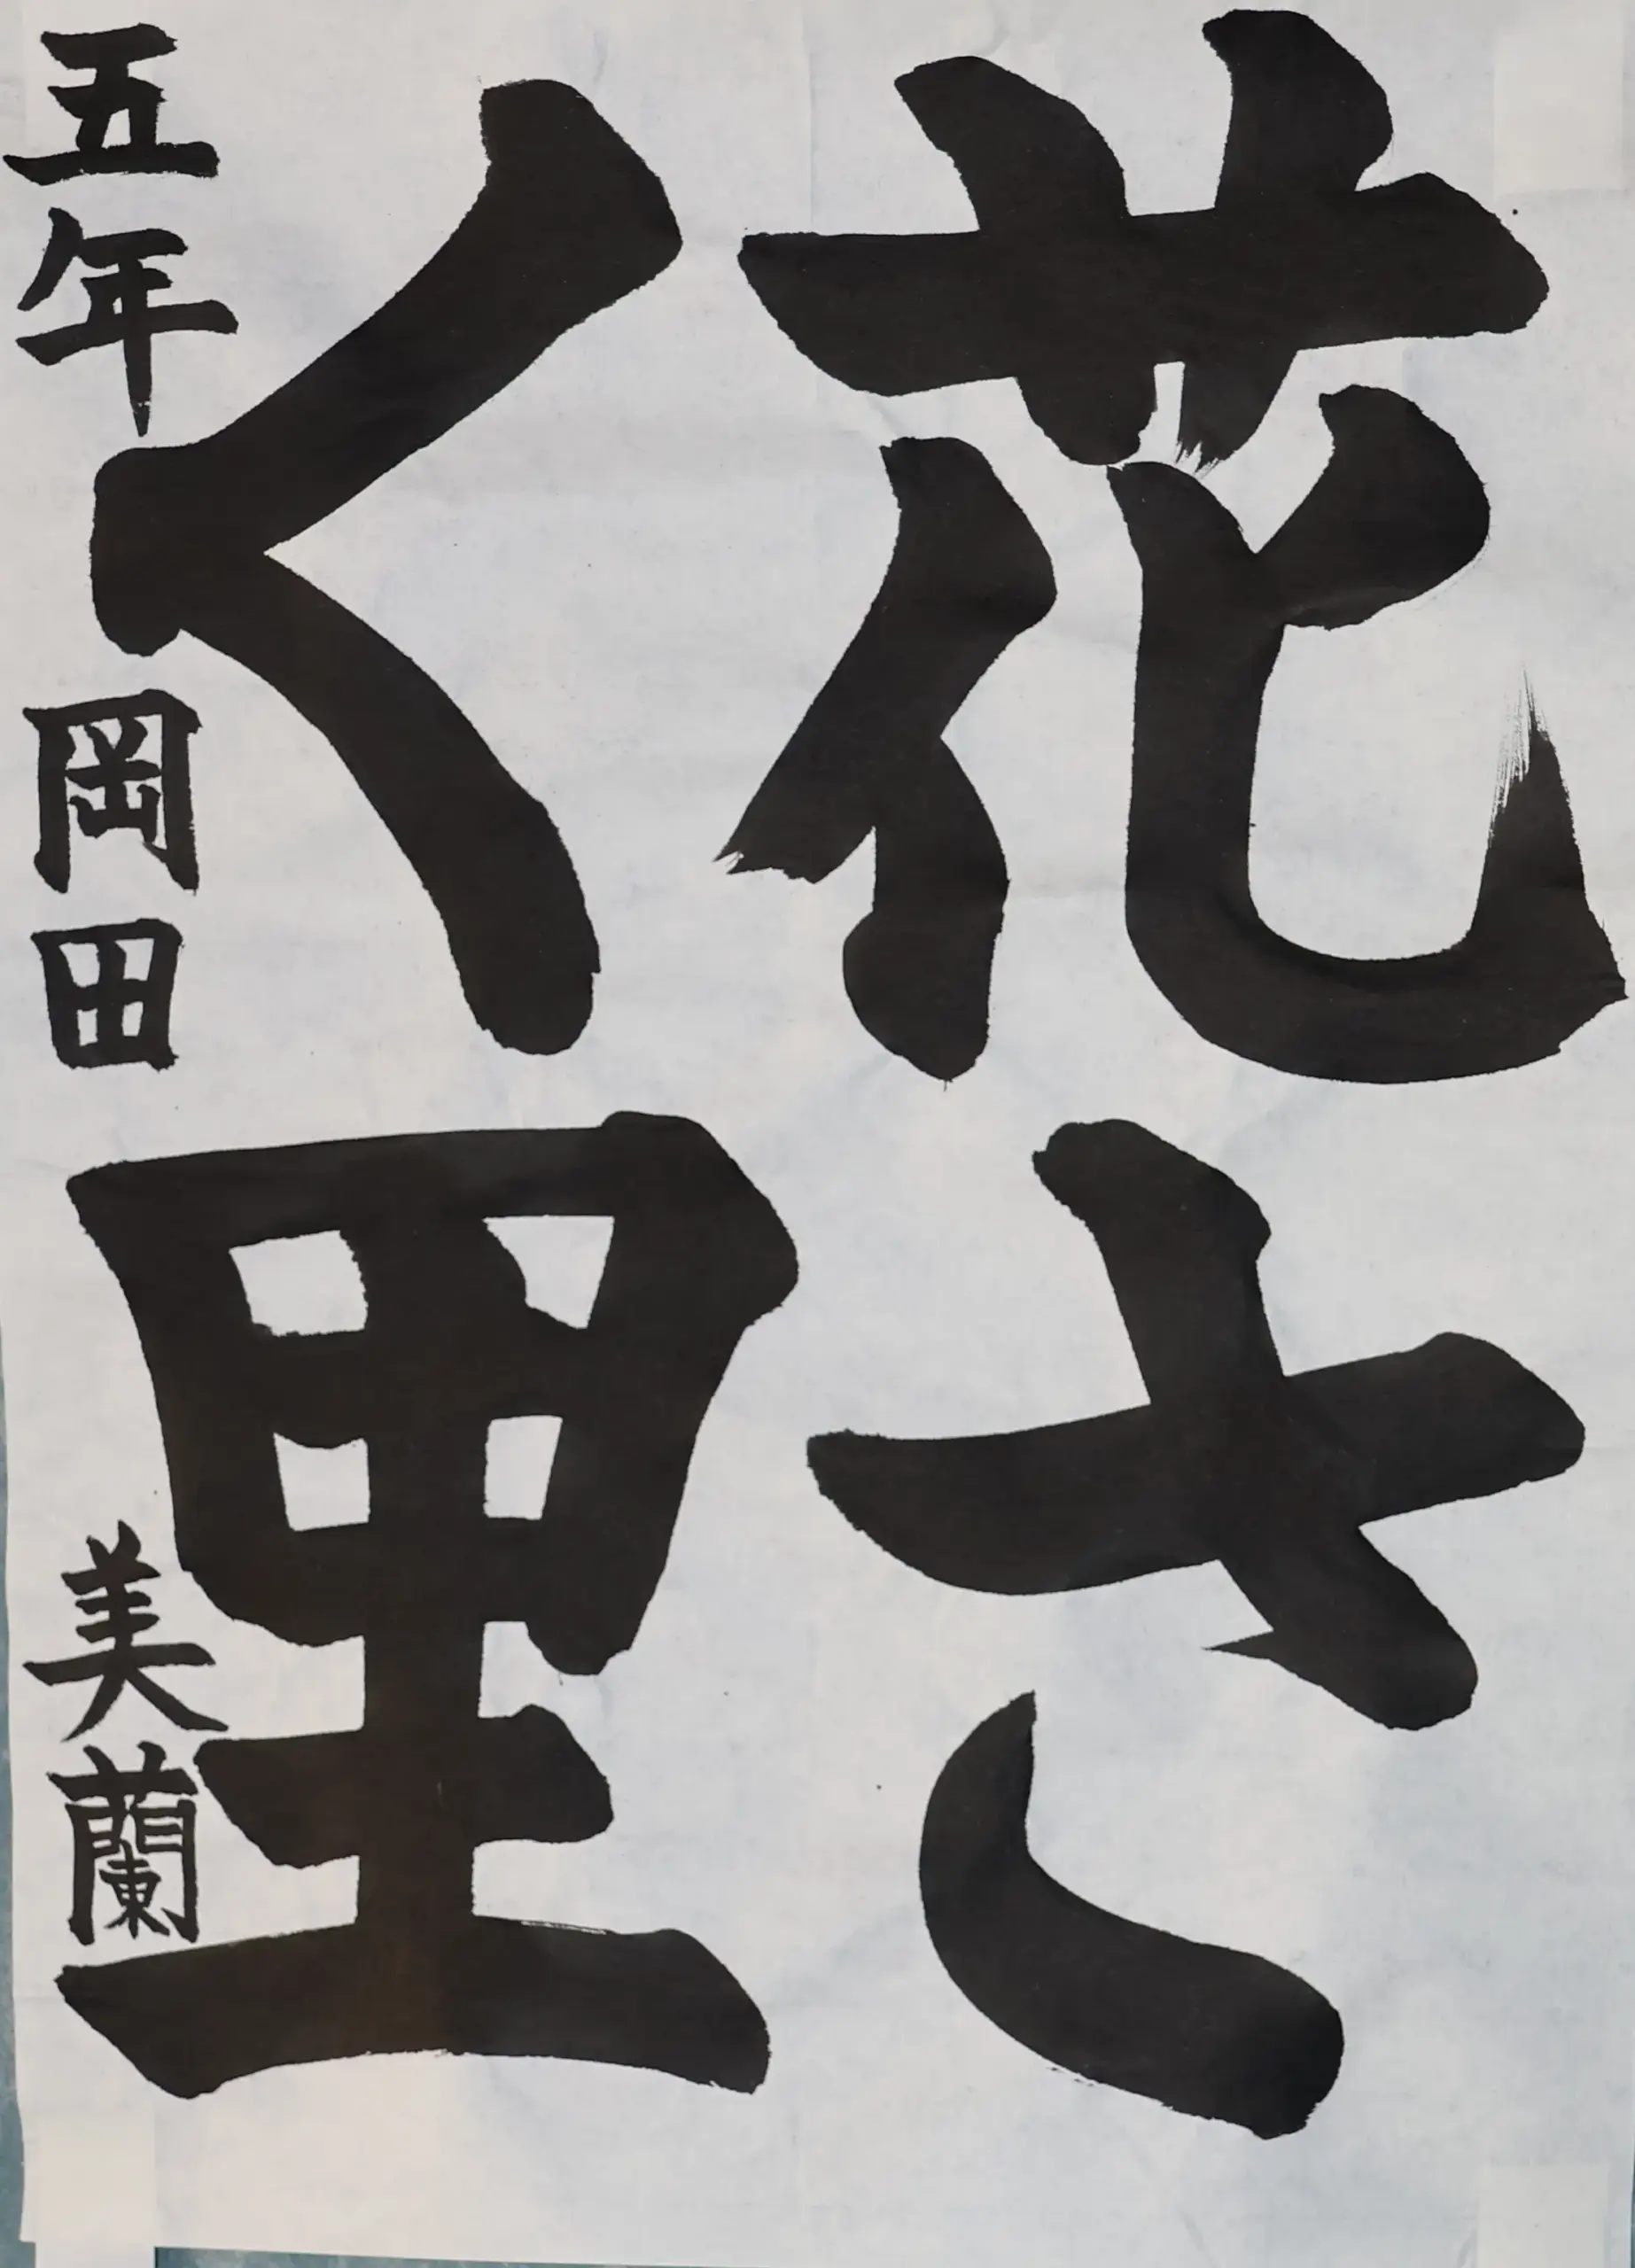 花さ
く里
五年 岡田 美蘭